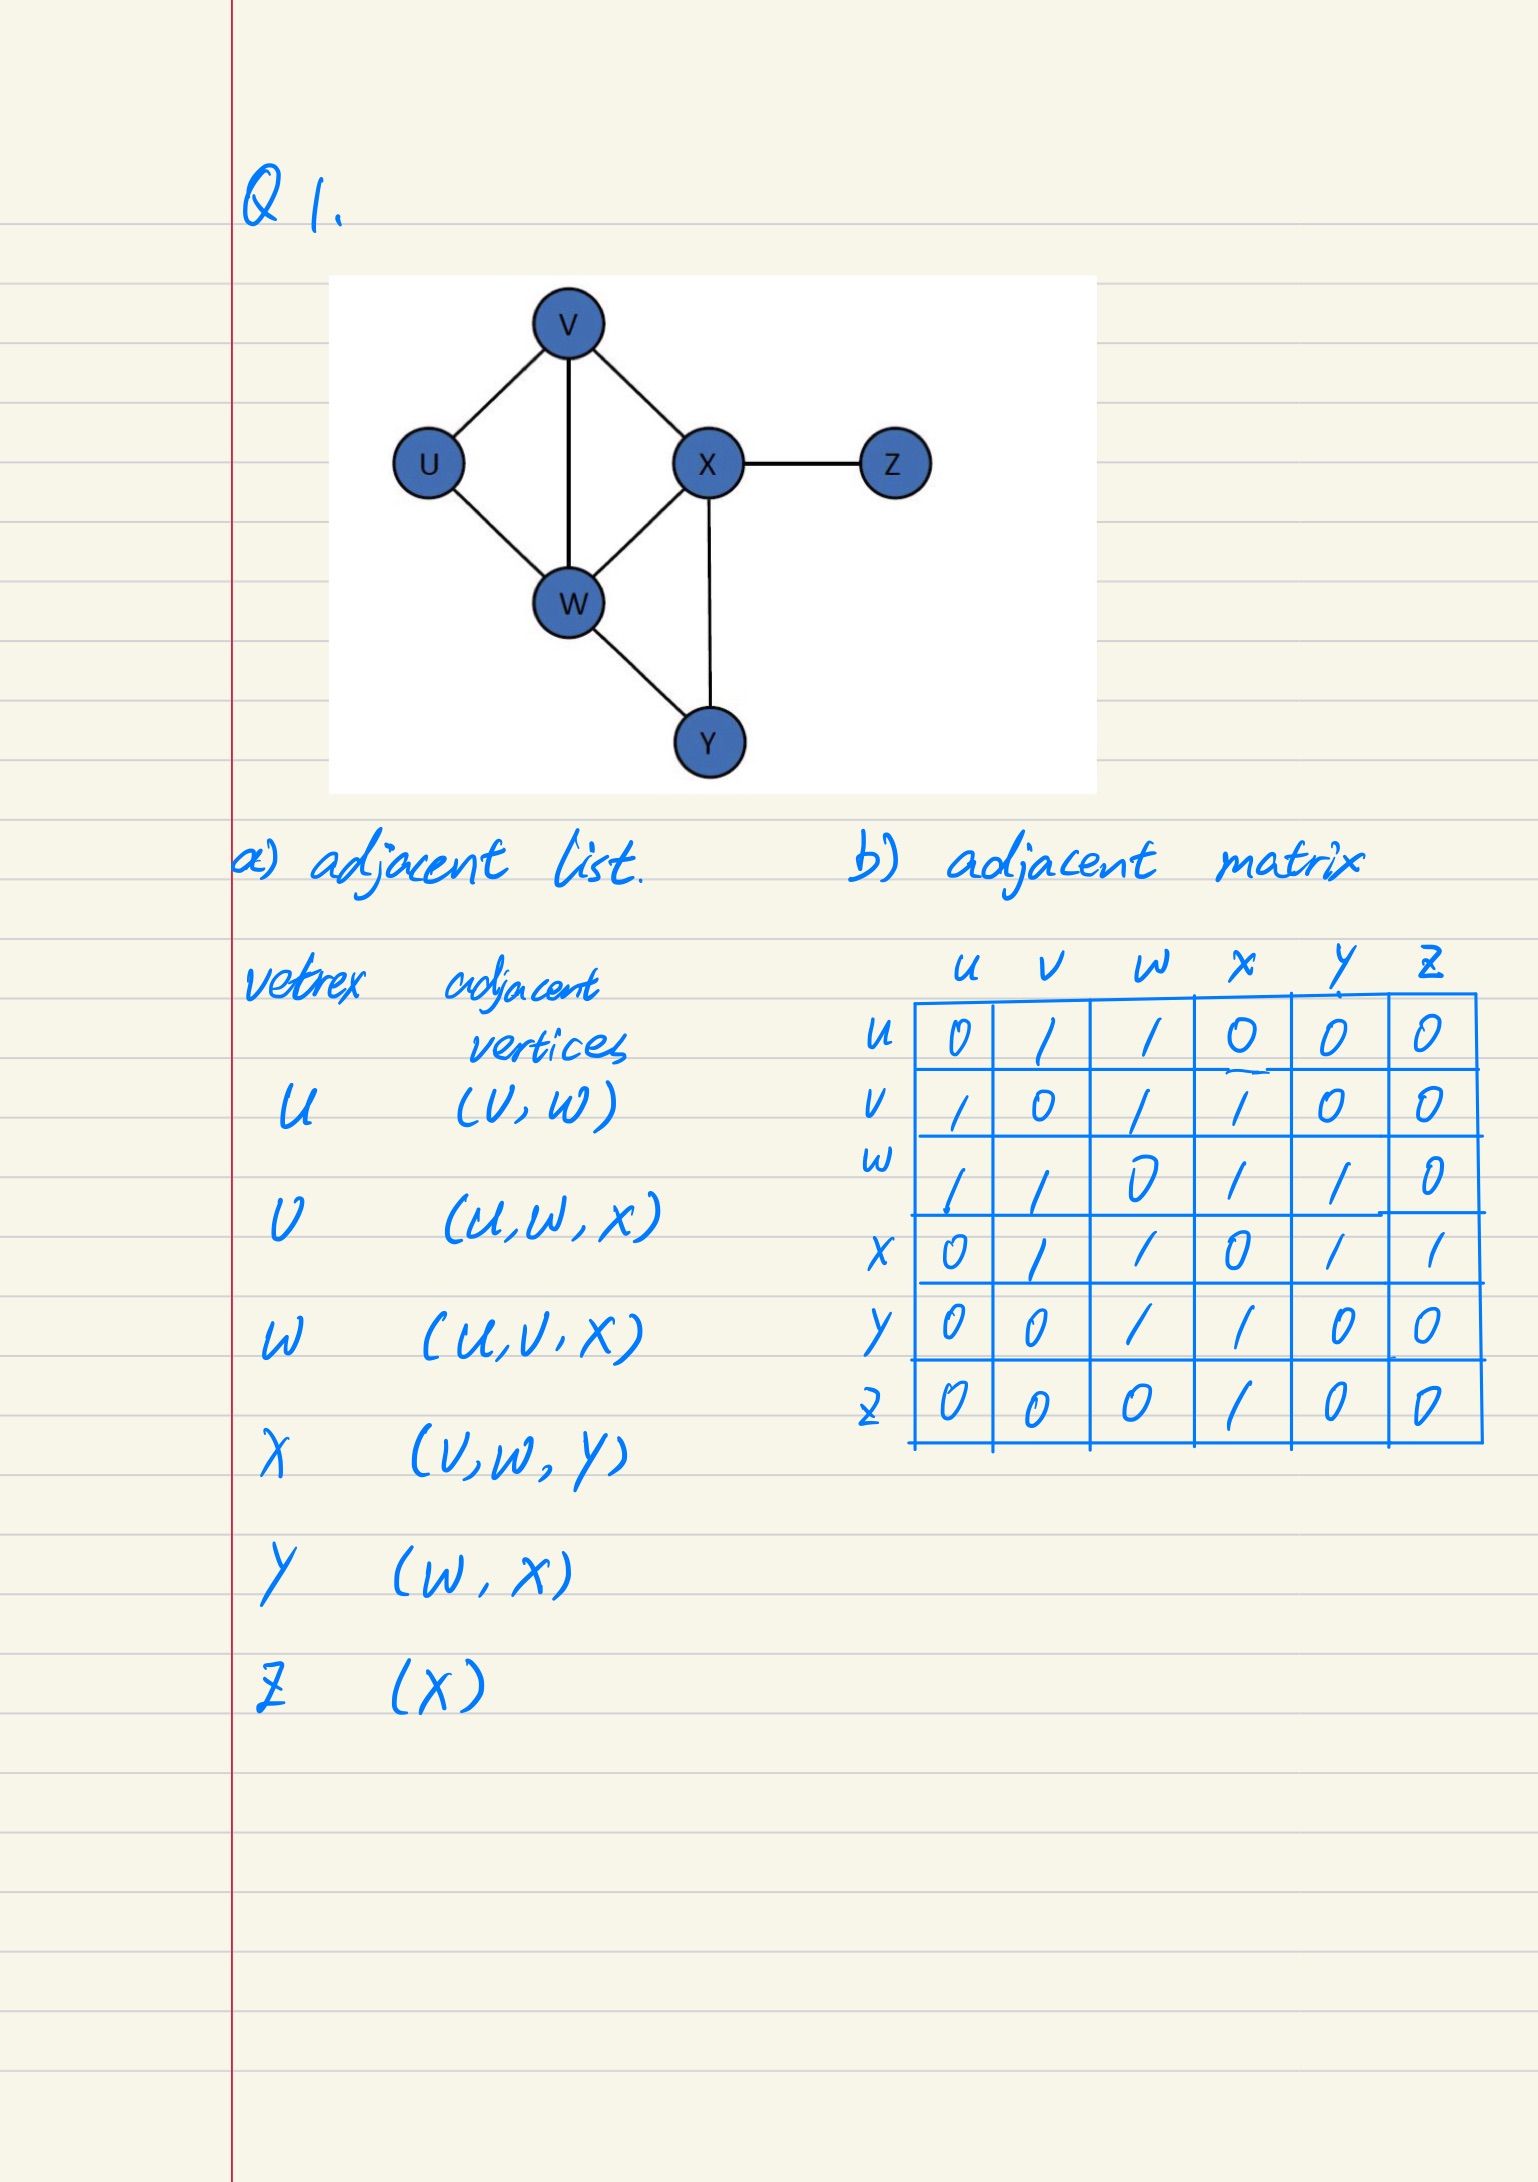 Q1.
V
U X Z
W
Y
a) adjacent list.
vetrex adjacent
vertices
U (V, W)
V (U, W, X)
W (U, V, X)
X (V, W, Y)
Y (W, X)
Z (X)
b) adjacent matrix
U V W X Y Z
U 0 1 1 0 0 0
V 1 0 1 1 0 0
W 1 1 0 1 1 0
X 0 1 1 0 1 1
Y 0 0 1 1 0 0
Z 0 0 0 1 0 0